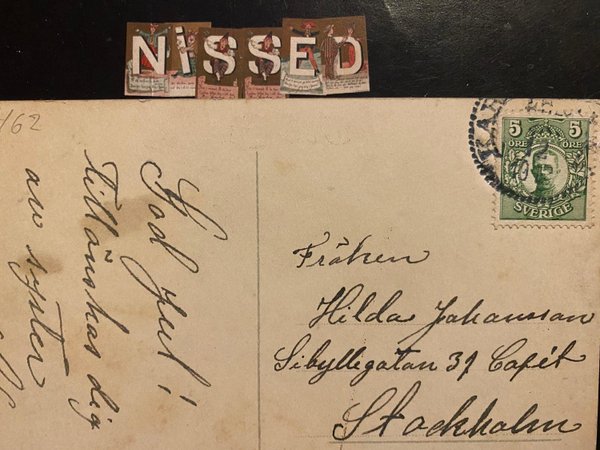 NiSSED
162
God Jul!
Tillönskas dig
av syster
5 5
ÖRE ÖRE
SVERIGE
Fröken
Hilda Johansson
Sibyllegatan 31 Cafét
Stockholm